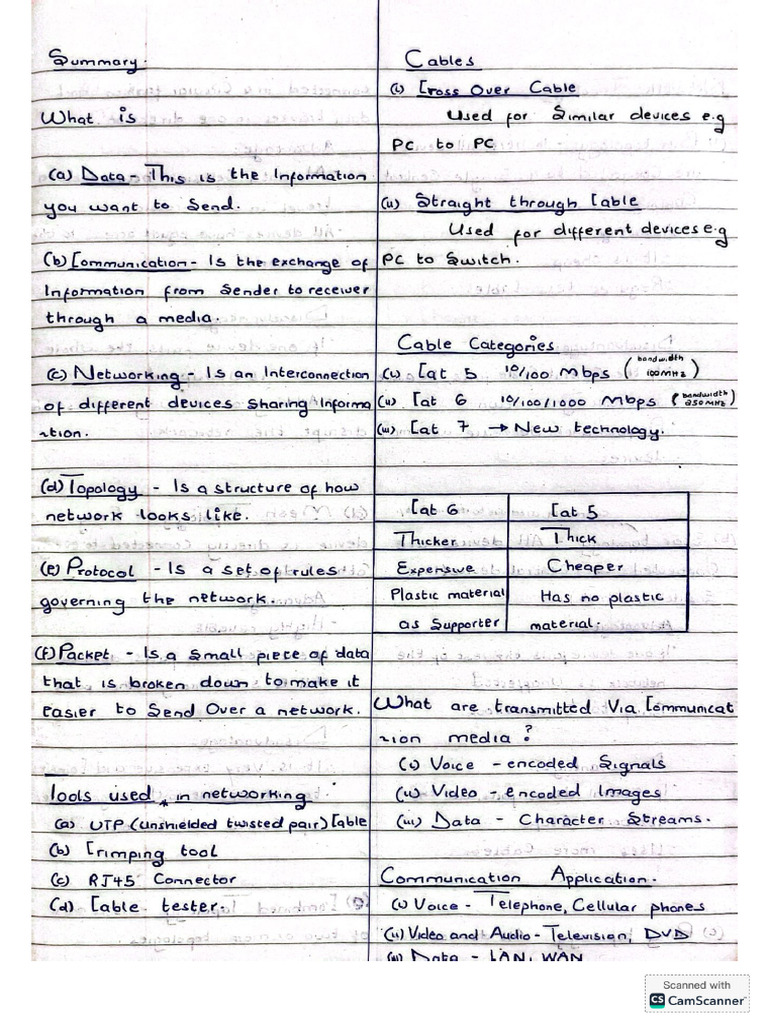 Summary.
What is
(a) Data - This is the Information
you want to Send.
(b) Communication - Is the exchange of
Information from Sender to receiver
through a media.
(c) Networking - Is an Interconnection
of different devices Sharing Informa
-tion.
(d) Topology - Is a structure of how
network looks like.
(e) Protocol - Is a set of rules
governing the network.
(f) Packet - Is a small piece of data
that is broken down to make it
easier to Send Over a network.
Tools used in networking
(a) UTP (unshielded twisted pair) Cable
(b) Crimping tool
(c) RJ45 Connector
(d) Cable tester.
Cables
(i) Cross Over Cable
Used for Similar devices e.g
PC to PC
(ii) Straight through Cable
Used for different devices e.g
PC to Switch.
Cable Categories
(i) Cat 5 10/100 Mbps (bandwidth 100MHz)
(ii) Cat 6 10/100/1000 Mbps (bandwidth 250MHz)
(iii) Cat 7 → New technology.
Cat 6 Cat 5
Thicker Thick
Expensive Cheaper
Plastic material Has no plastic
as Supporter material.
What are transmitted Via Communicat
-ion media?
(i) Voice - encoded Signals
(ii) Video - encoded Images
(iii) Data - Character Streams.
Communication Application.
(i) Voice - Telephone, Cellular phones
(ii) Video and Audio - Television, DVD
(iii) Data - LAN, WAN
Scanned with
CS CamScanner